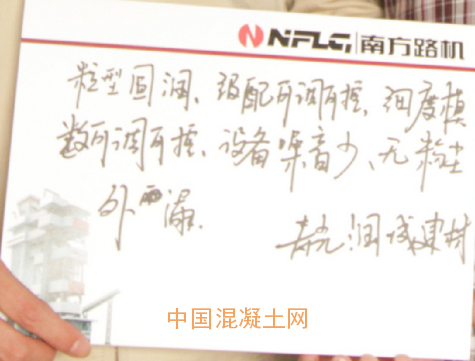 NFLG 南方路机
粒型圆润、级配可调可控、细度模
数可调可控、设备噪音少、无粉尘
外泄漏.
寿光润成建材
中国混凝土网